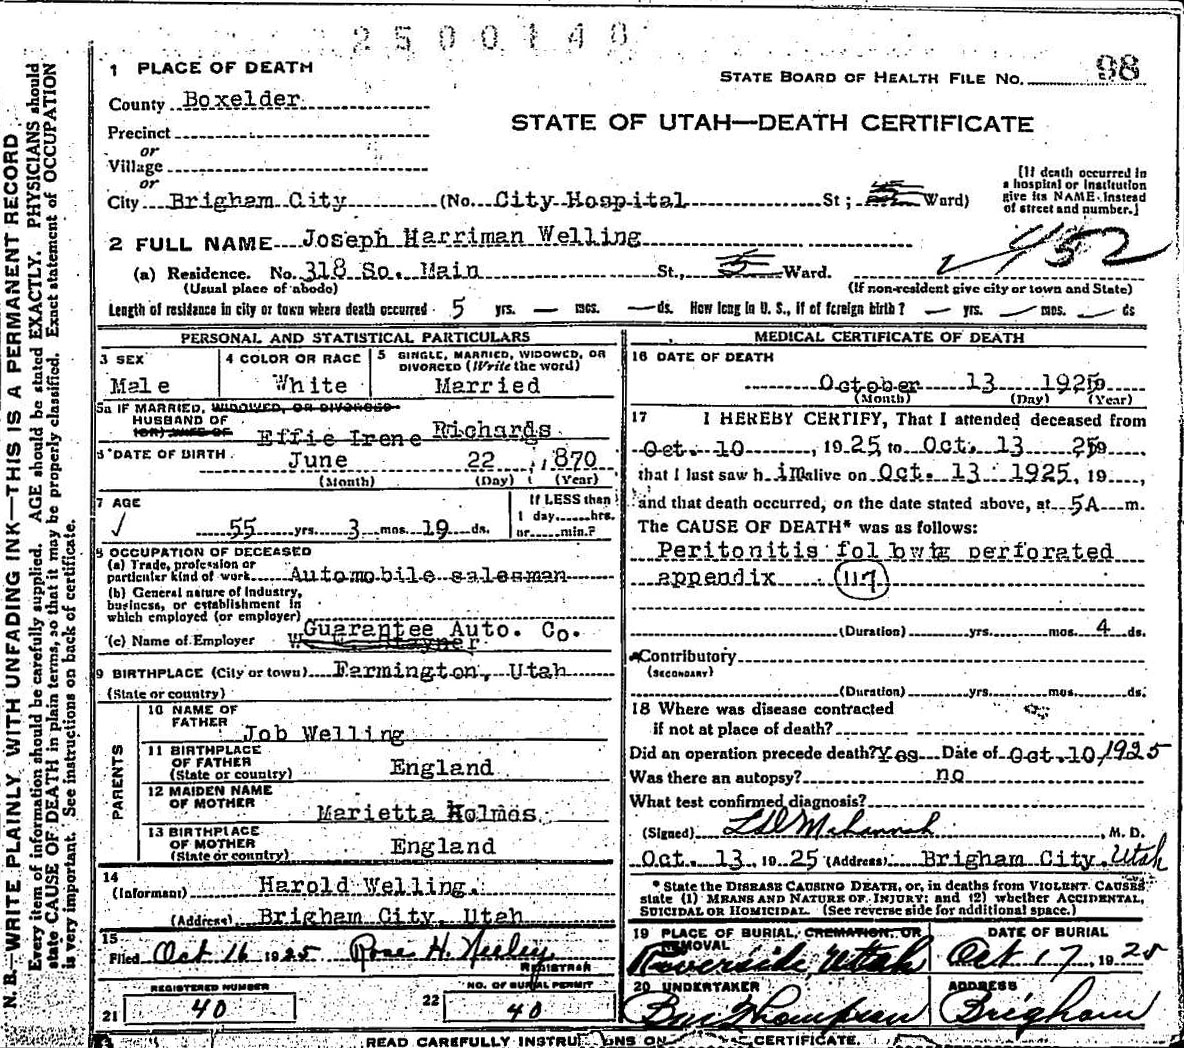 2500140
1 PLACE OF DEATH
STATE BOARD OF HEALTH FILE NO. 98
County Boxelder
STATE OF UTAH—DEATH CERTIFICATE
Precinct
or
Village
or
City Brigham City (No. City Hospital St; Ward)
[If death occurred in
a hospital or institution
give its NAME instead
of street and number.]
2 FULL NAME Joseph Harriman Welling
452
(a) Residence. No. 318 So. Main St., 5 Ward.
(Usual place of abode) (If non-resident give city or town and State)
Length of residence in city or town where death occurred 5 yrs. — mos. — ds. How long in U. S., if of foreign birth? — yrs. — mos. — ds
PERSONAL AND STATISTICAL PARTICULARS
3 SEX
Male
4 COLOR OR RACE
White
5 SINGLE, MARRIED, WIDOWED, OR
DIVORCED (Write the word)
Married
5a IF MARRIED, WIDOWED, OR DIVORCED
HUSBAND OF
(OR) WIFE OF
Effie Irene Richards
6 DATE OF BIRTH June 22, 1870
(Month) (Day) (Year)
7 AGE
55 yrs. 3 mos. 19 ds.
If LESS than
1 day......hrs.
or......min.?
8 OCCUPATION OF DECEASED
(a) Trade, profession or
particular kind of work Automobile salesman
(b) General nature of industry,
business, or establishment in
which employed (or employer)
Guarantee Auto. Co.
(c) Name of Employer
9 BIRTHPLACE (City or town) Farmington, Utah
(State or country)
PARENTS
10 NAME OF
FATHER
Job Welling
11 BIRTHPLACE
OF FATHER
(State or country)
England
12 MAIDEN NAME
OF MOTHER
Marietta Holmes
13 BIRTHPLACE
OF MOTHER
(State or country)
England
14
(Informant) Harold Welling.
(Address) Brigham City, Utah
15
Filed Oct 16 1925 Rose H. Neeley
REGISTRAR
REGISTERED NUMBER
21 40
NO. OF BURIAL PERMIT
22 40
MEDICAL CERTIFICATE OF DEATH
16 DATE OF DEATH
October 13 1925
(Month) (Day) (Year)
17 I HEREBY CERTIFY, That I attended deceased from
Oct. 10, 1925 to Oct. 13 25
that I last saw h im alive on Oct. 13 1925, 19
and that death occurred, on the date stated above, at 5A m.
The CAUSE OF DEATH* was as follows:
Peritonitis fol bwig perforated
appendix 117
(Duration) yrs. mos. 4 ds.
Contributory
(SECONDARY)
(Duration) yrs. mos. ds.
18 Where was disease contracted
if not at place of death?
Did an operation precede death? Yes Date of Oct. 10, 1925
Was there an autopsy? no
What test confirmed diagnosis?
(Signed) M. D.
Oct. 13, 1925 (Address) Brigham City, Utah
* State the DISEASE CAUSING DEATH, or, in deaths from VIOLENT CAUSES
state (1) MEANS AND NATURE OF INJURY; and (2) whether ACCIDENTAL,
SUICIDAL OR HOMICIDAL. (See reverse side for additional space.)
19 PLACE OF BURIAL, CREMATION, OR
REMOVAL
Riverside, Utah
DATE OF BURIAL
Oct 17, 1925
20 UNDERTAKER
Thompson
ADDRESS
Brigham
READ CAREFULLY INSTRUCTIONS ON CERTIFICATE.
N. B.—WRITE PLAINLY, WITH UNFADING INK—THIS IS A PERMANENT RECORD
Every item of information should be carefully supplied. AGE should be stated EXACTLY. PHYSICIANS should
state CAUSE OF DEATH in plain terms, so that it may be properly classified. Exact statement of OCCUPATION
is very important. See instructions on back of certificate.